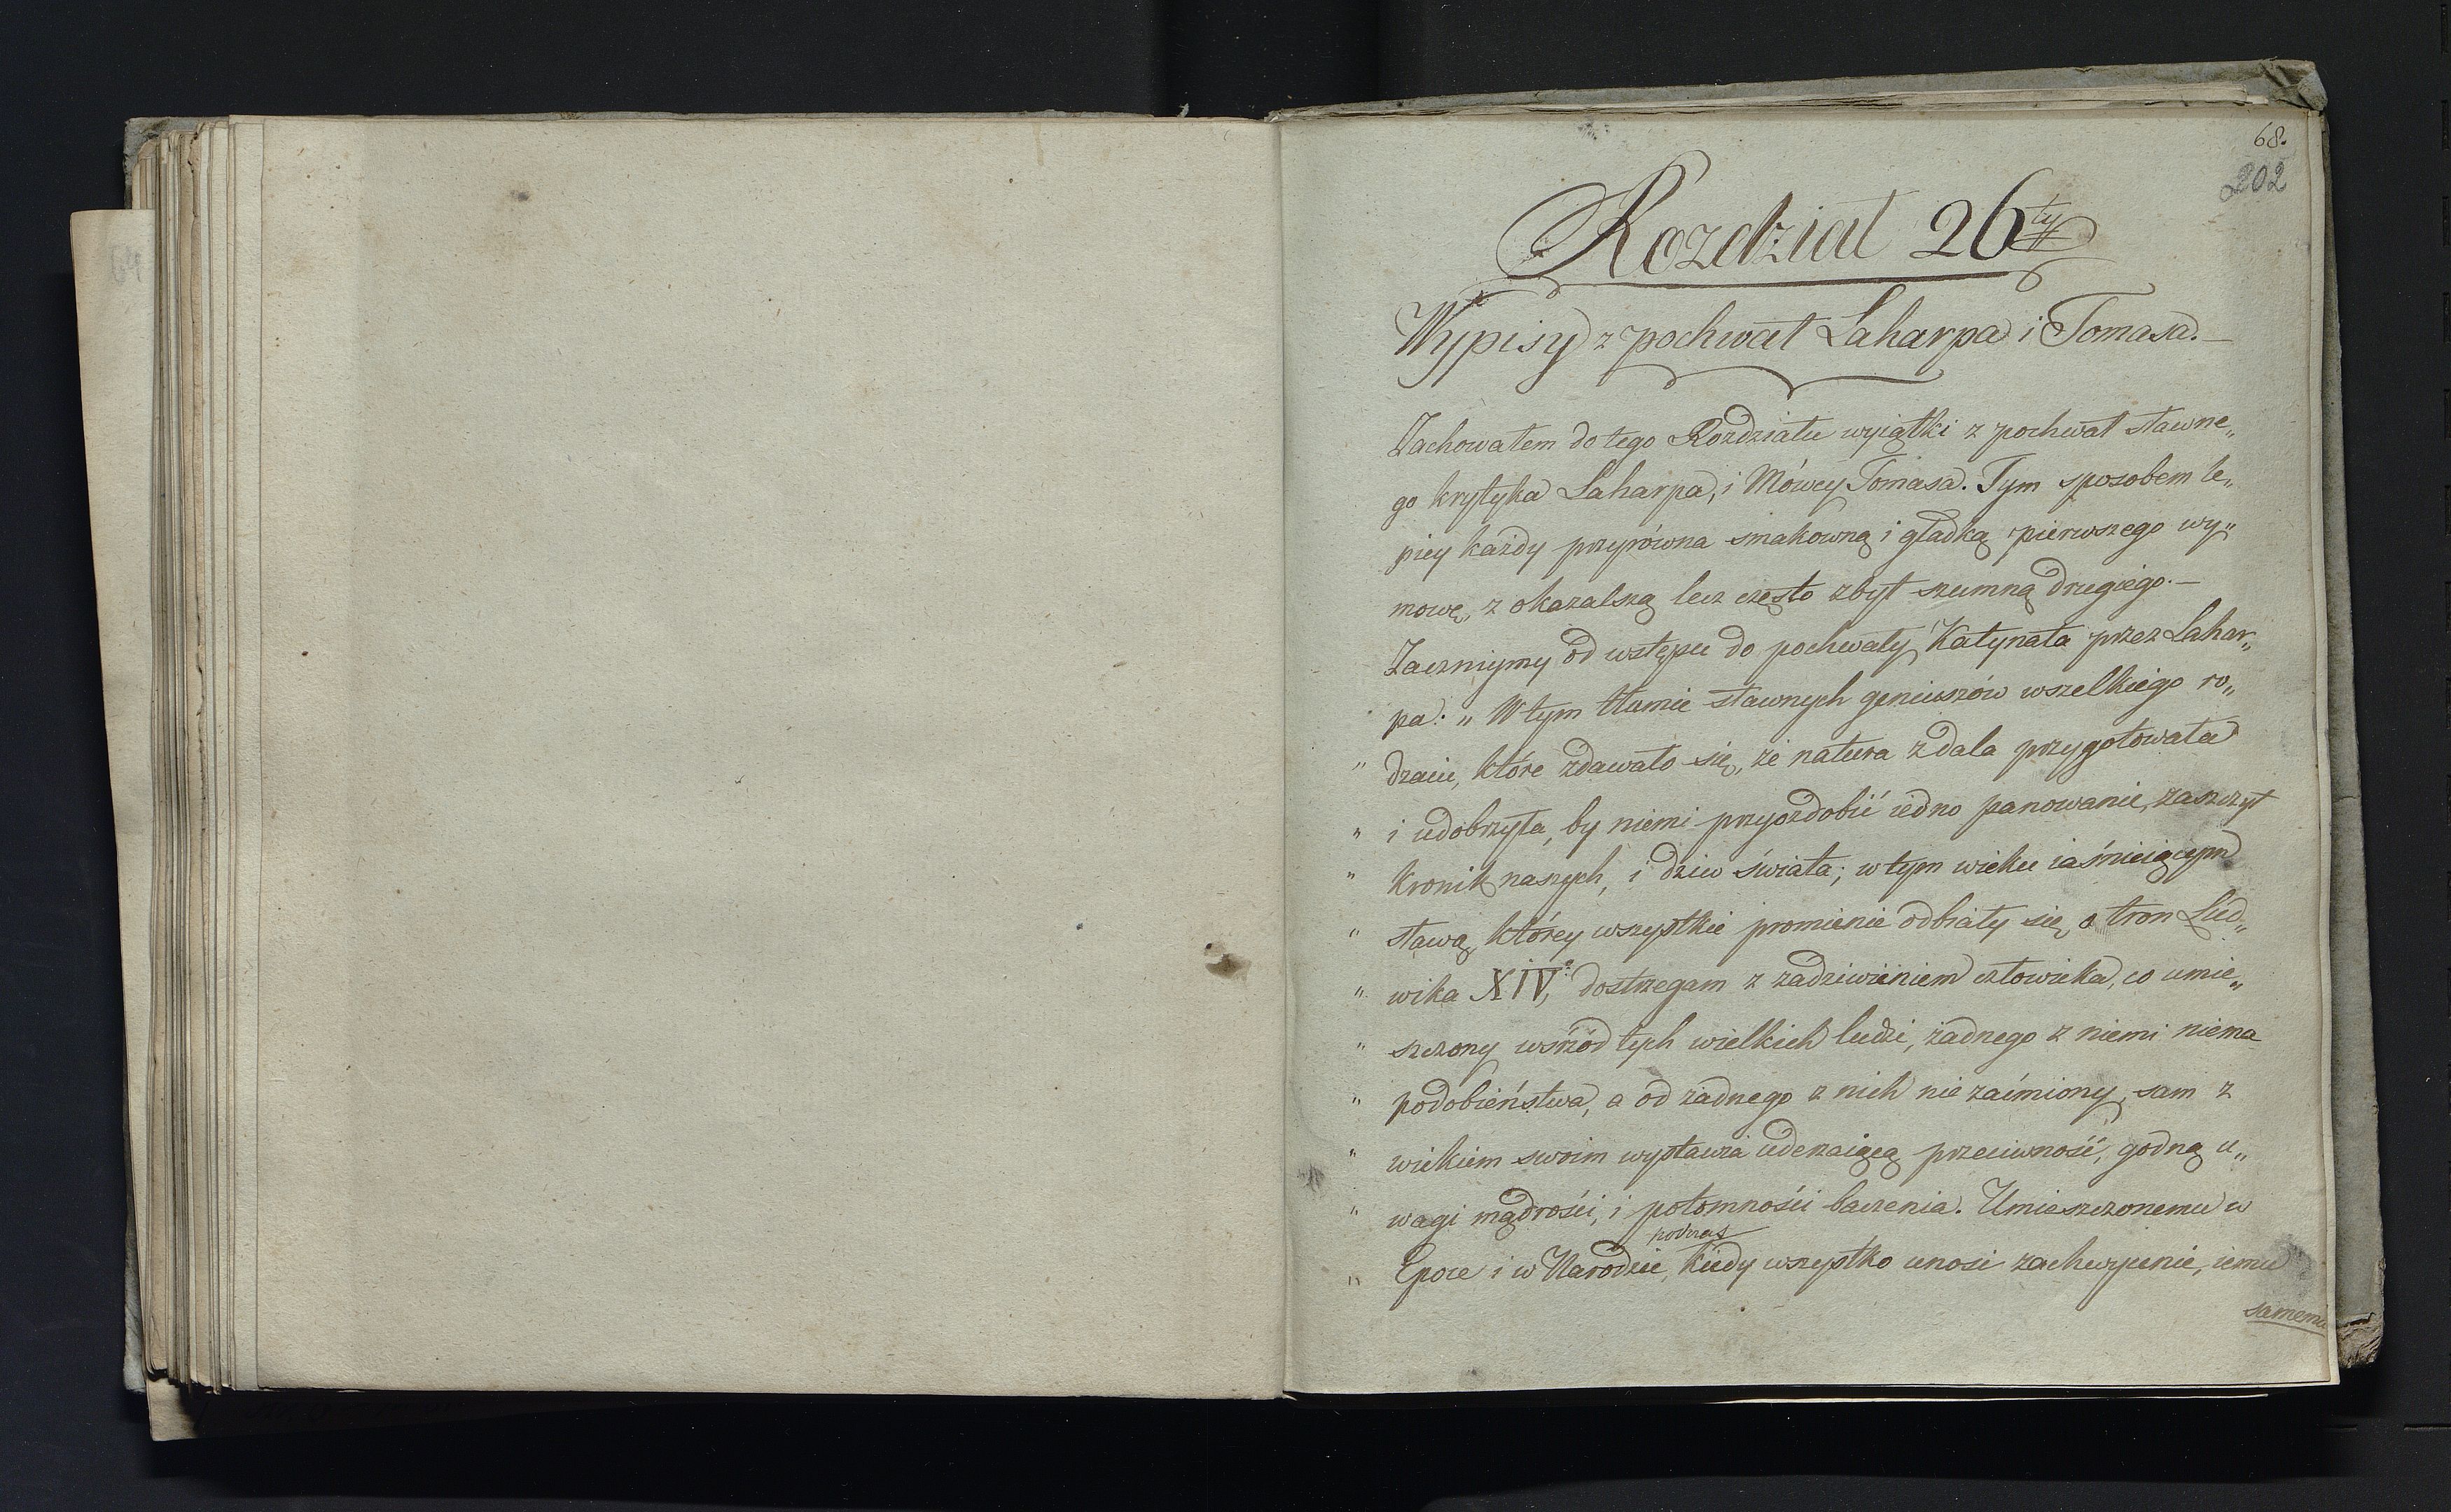 68.
202
Rozdział 26ty
Wypisy z pochwał Laharpa i Tomasa.—
Zachowałem do tego Rozdziału wyiątki z pochwał sławne„
go krytyka Laharpa, i Mówcy Tomasa. Tym sposobem le„
piey każdy przyrówna smakowną i gładką pierwszego wy„
mowę, z okazalszą lecz często zbyt szumną drugiego.—
Zaczniymy od wstępu do pochwały Katynata przez Lahar„
pa: „ W tym tłumie sławnych geniuszów wszelkiego ro„
„ dzaiu, które zdawało się, że natura zdala przygotowała
„ i udobrzyła, by niemi przyozdobić iedno panowanie, zaszczyt
„ kronik naszych, i dziw świata; w tym wieku iaśnieiącym
„ sławą, którey wszystkie promienie odbiały się, o tron Lud„
„ wika XIVº, dostrzegam z zadziwieniem człowieka, co umie„
„ szczony wśrzód tych wielkich ludzi, żadnego z niemi niema
„ podobieństwa, a od żadnego z nich nie zaćmiony, sam z
„ wiekiem swoim wystawia uderzaiącą przeciwność, godną u„
„ wagi mądrości, i potomności baczenia. Umieszczonemu w
podczas
„ Epoce i w Narodzie, kiedy wszystko unosi zachwycenie, iemu
samemu